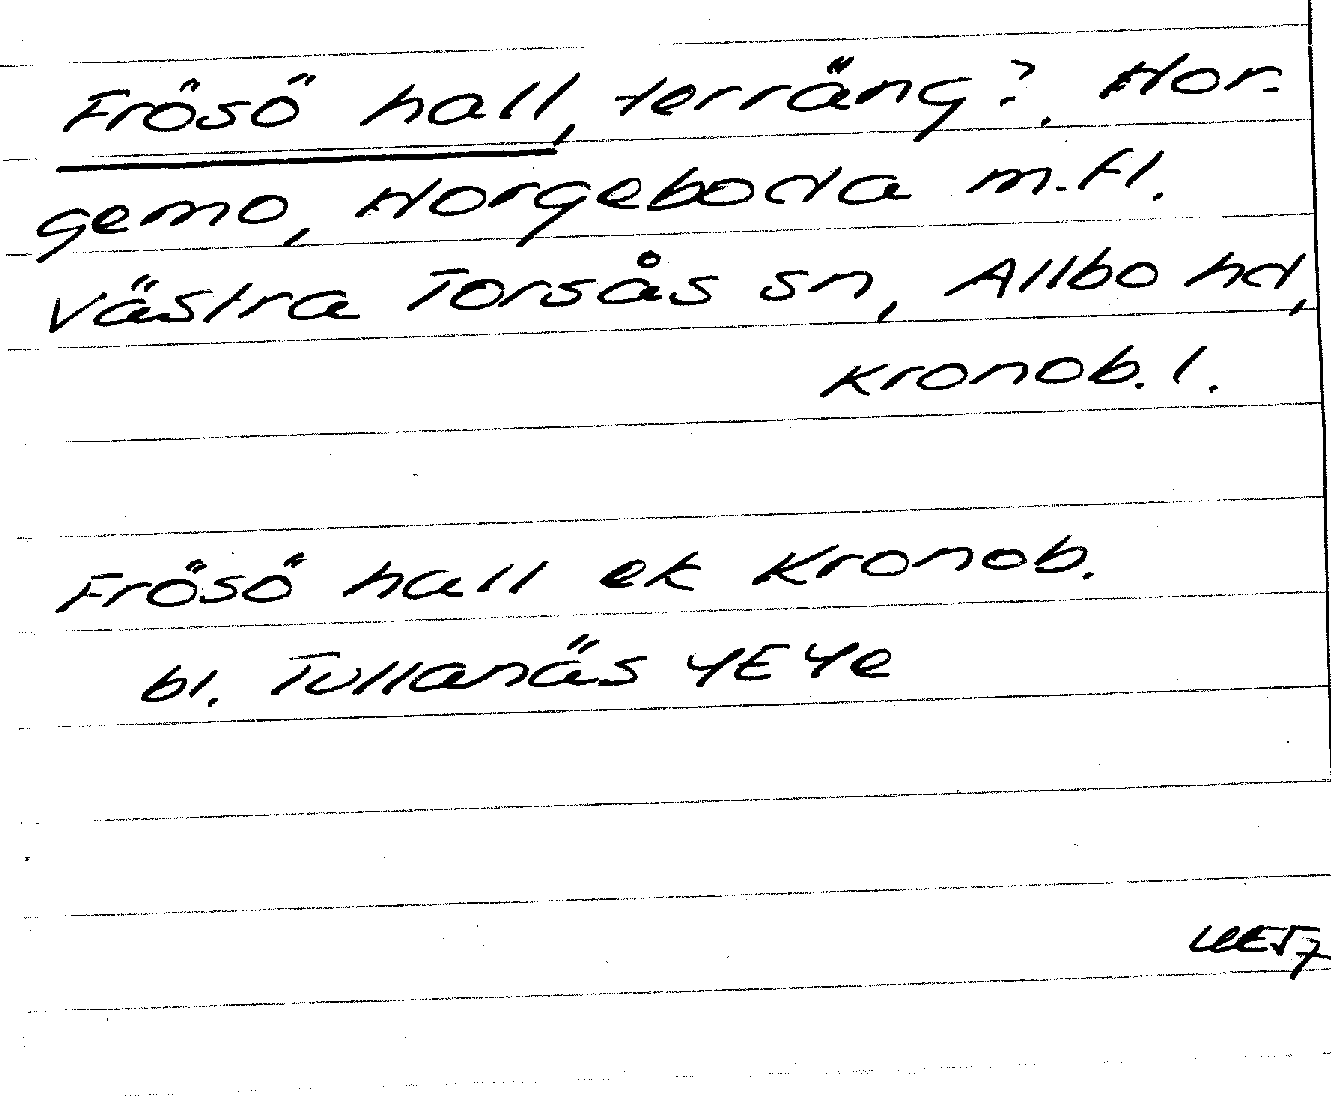 Frösö hall, terräng?. Hor-
gemo, Horgeboda m.fl.
Västra Torsås sn, Allbo hd,
Kronob. l.
Frösö hall ek Kronob.
bl. Tullanäs 4E4e